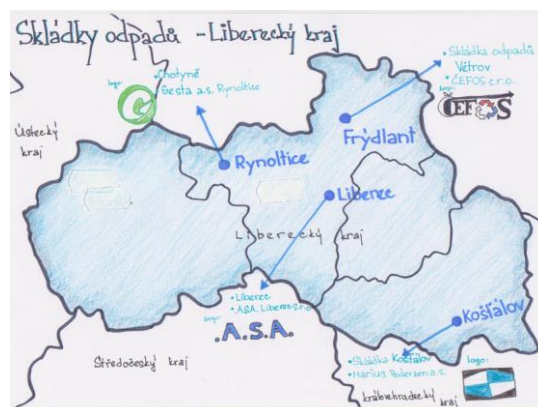 Skládky odpadů - Liberecký kraj
logo:
• Chotyně
• Gesta a.s. Rynoltice
• Skládka odpadů
Větrov
• ČEFOS s.r.o.
logo:
ČEFOS
Ústecký
kraj
Frýdlant
Rynoltice
Liberec
Liberecký kraj
• Liberec
• A.S.A. Liberec s.r.o.
logo:
.A.S.A.
Košťálov
Středočeský kraj
• Skládka Košťálov
• Marius Pedersen a.s.
logo:
královehradecký
kraj